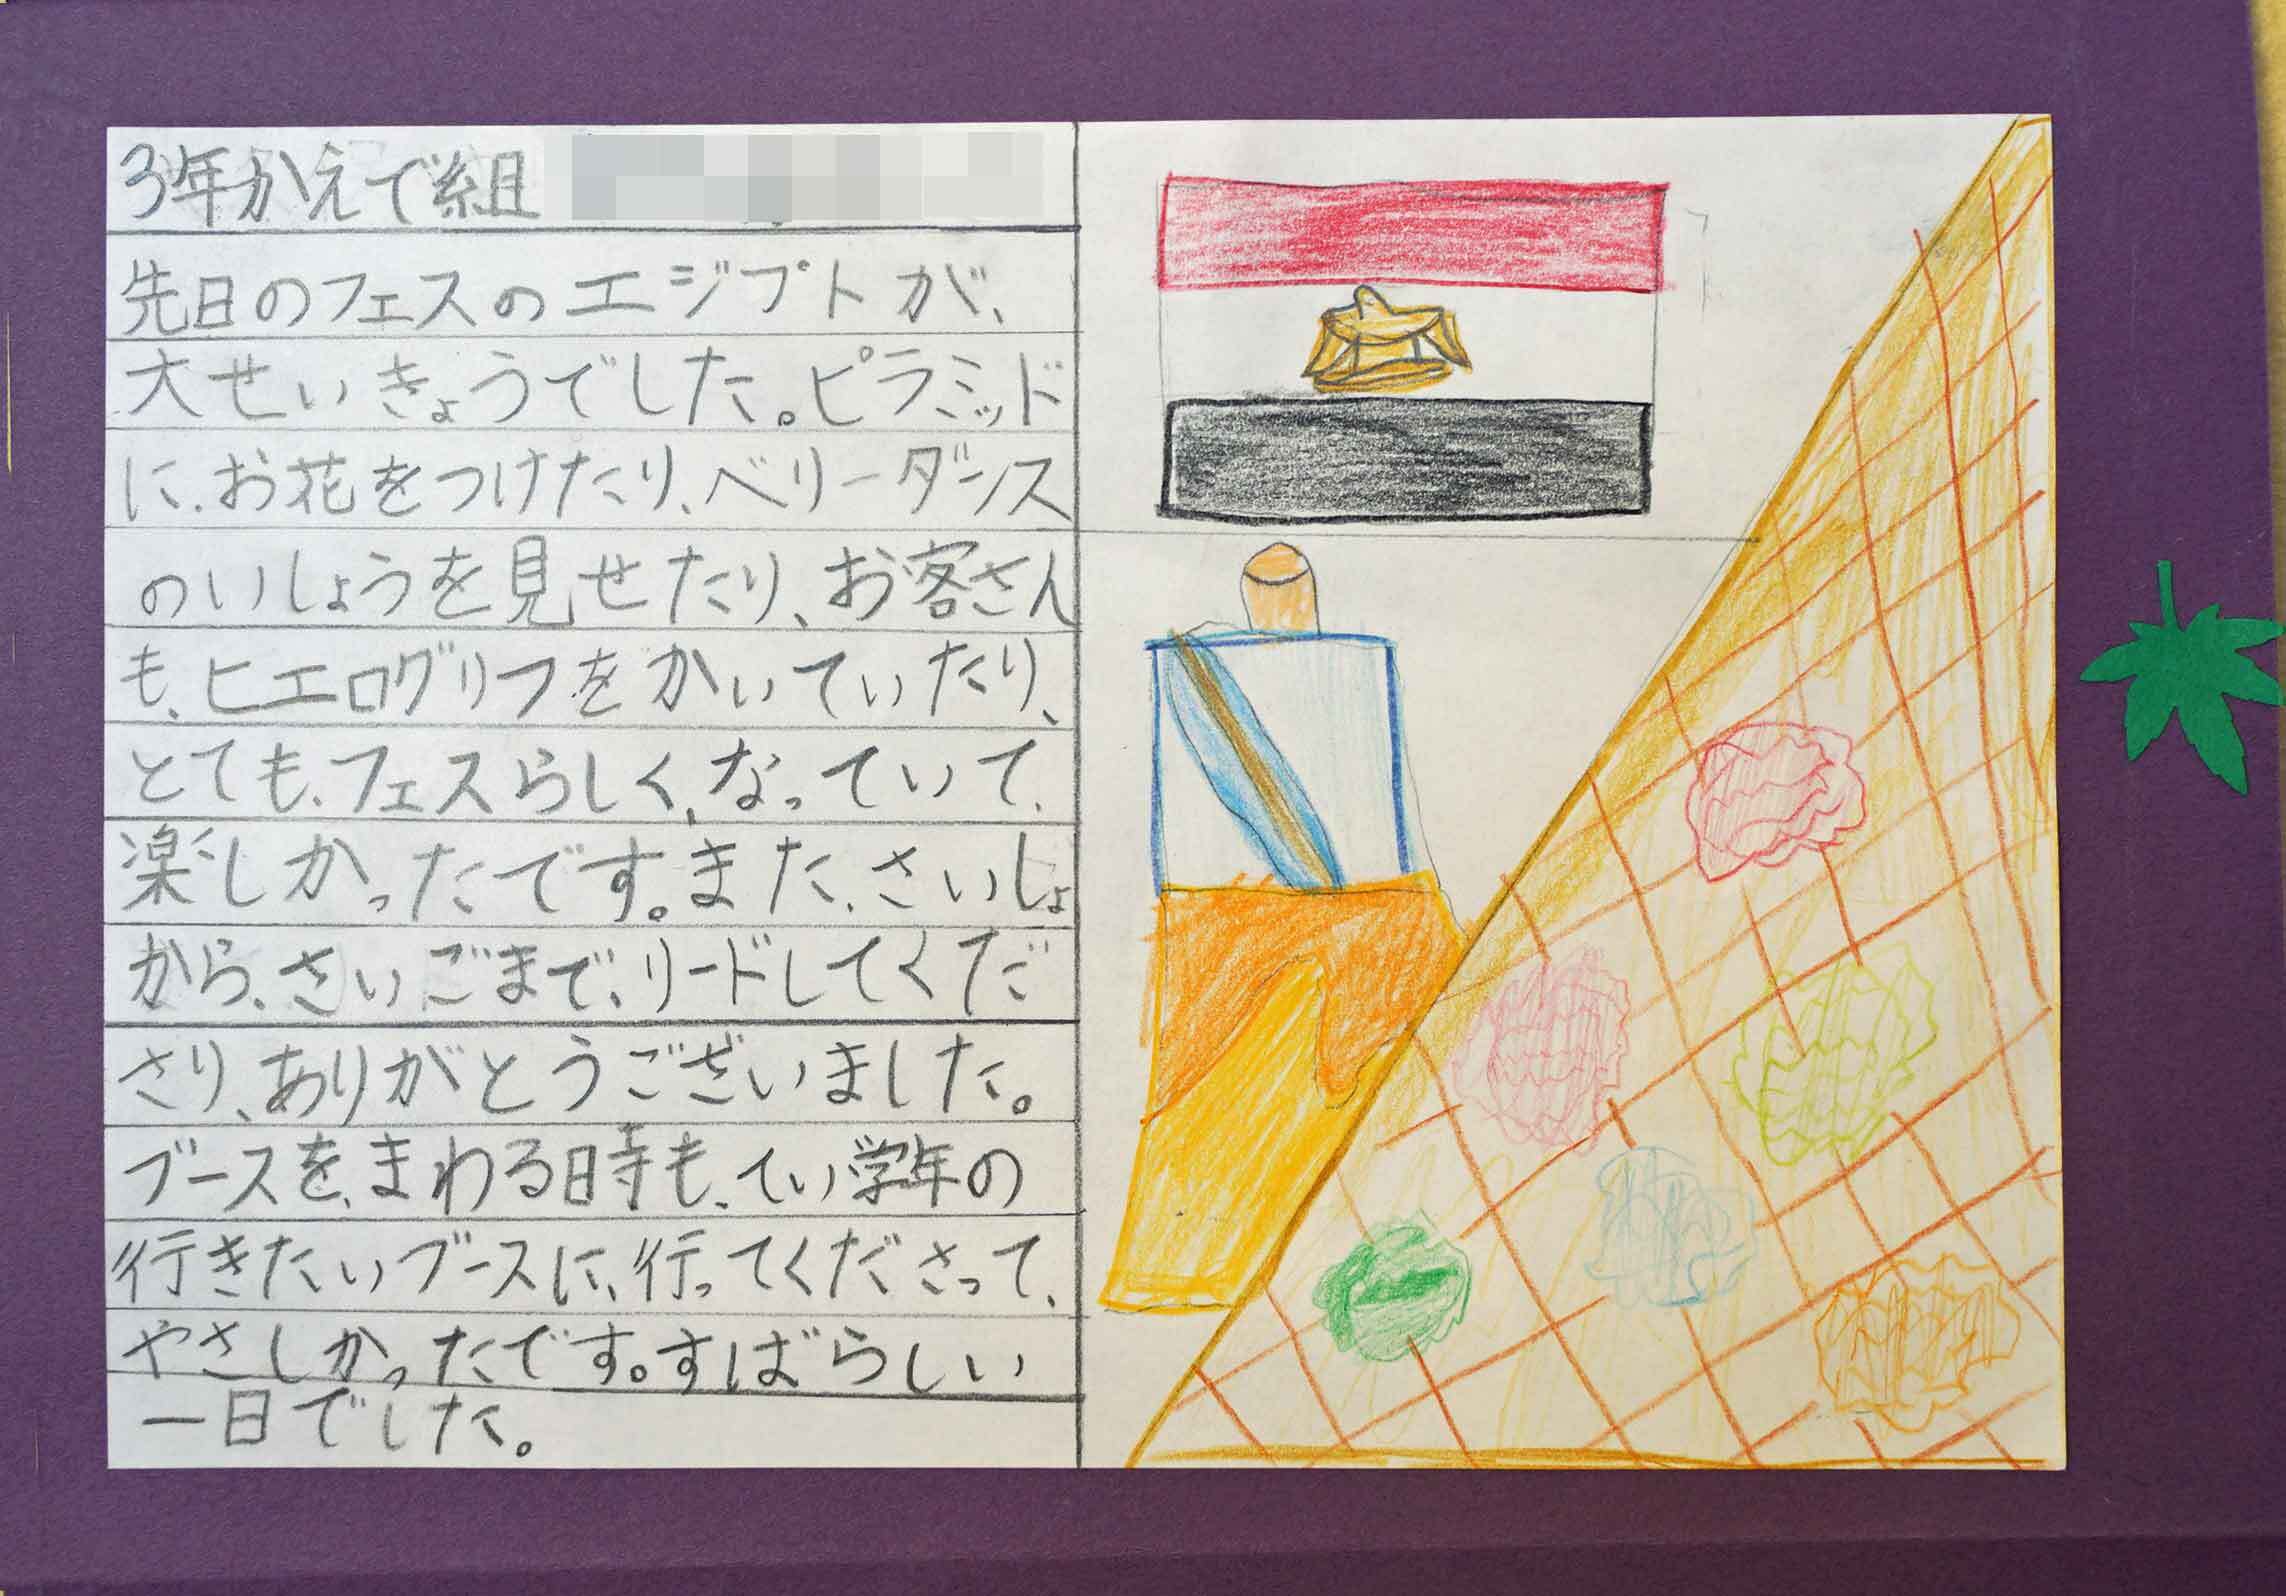 3年かえで組
先日のフェスのエジプトが、
大せいきょうでした。ピラミッド
に、お花をつけたり、ベリーダンス
のいしょうを見せたり、お客さん
も、ヒエログリフをかいていたり、
とても、フェスらしく、なっていて、
楽しかったです。また、さいしょ
から、さいごまで、リードしてくだ
さり、ありがとうございました。
ブースを、まわる時も、てい学年の
行きたいブースに、行ってくださって、
やさしかったです。すばらしい
一日でした。